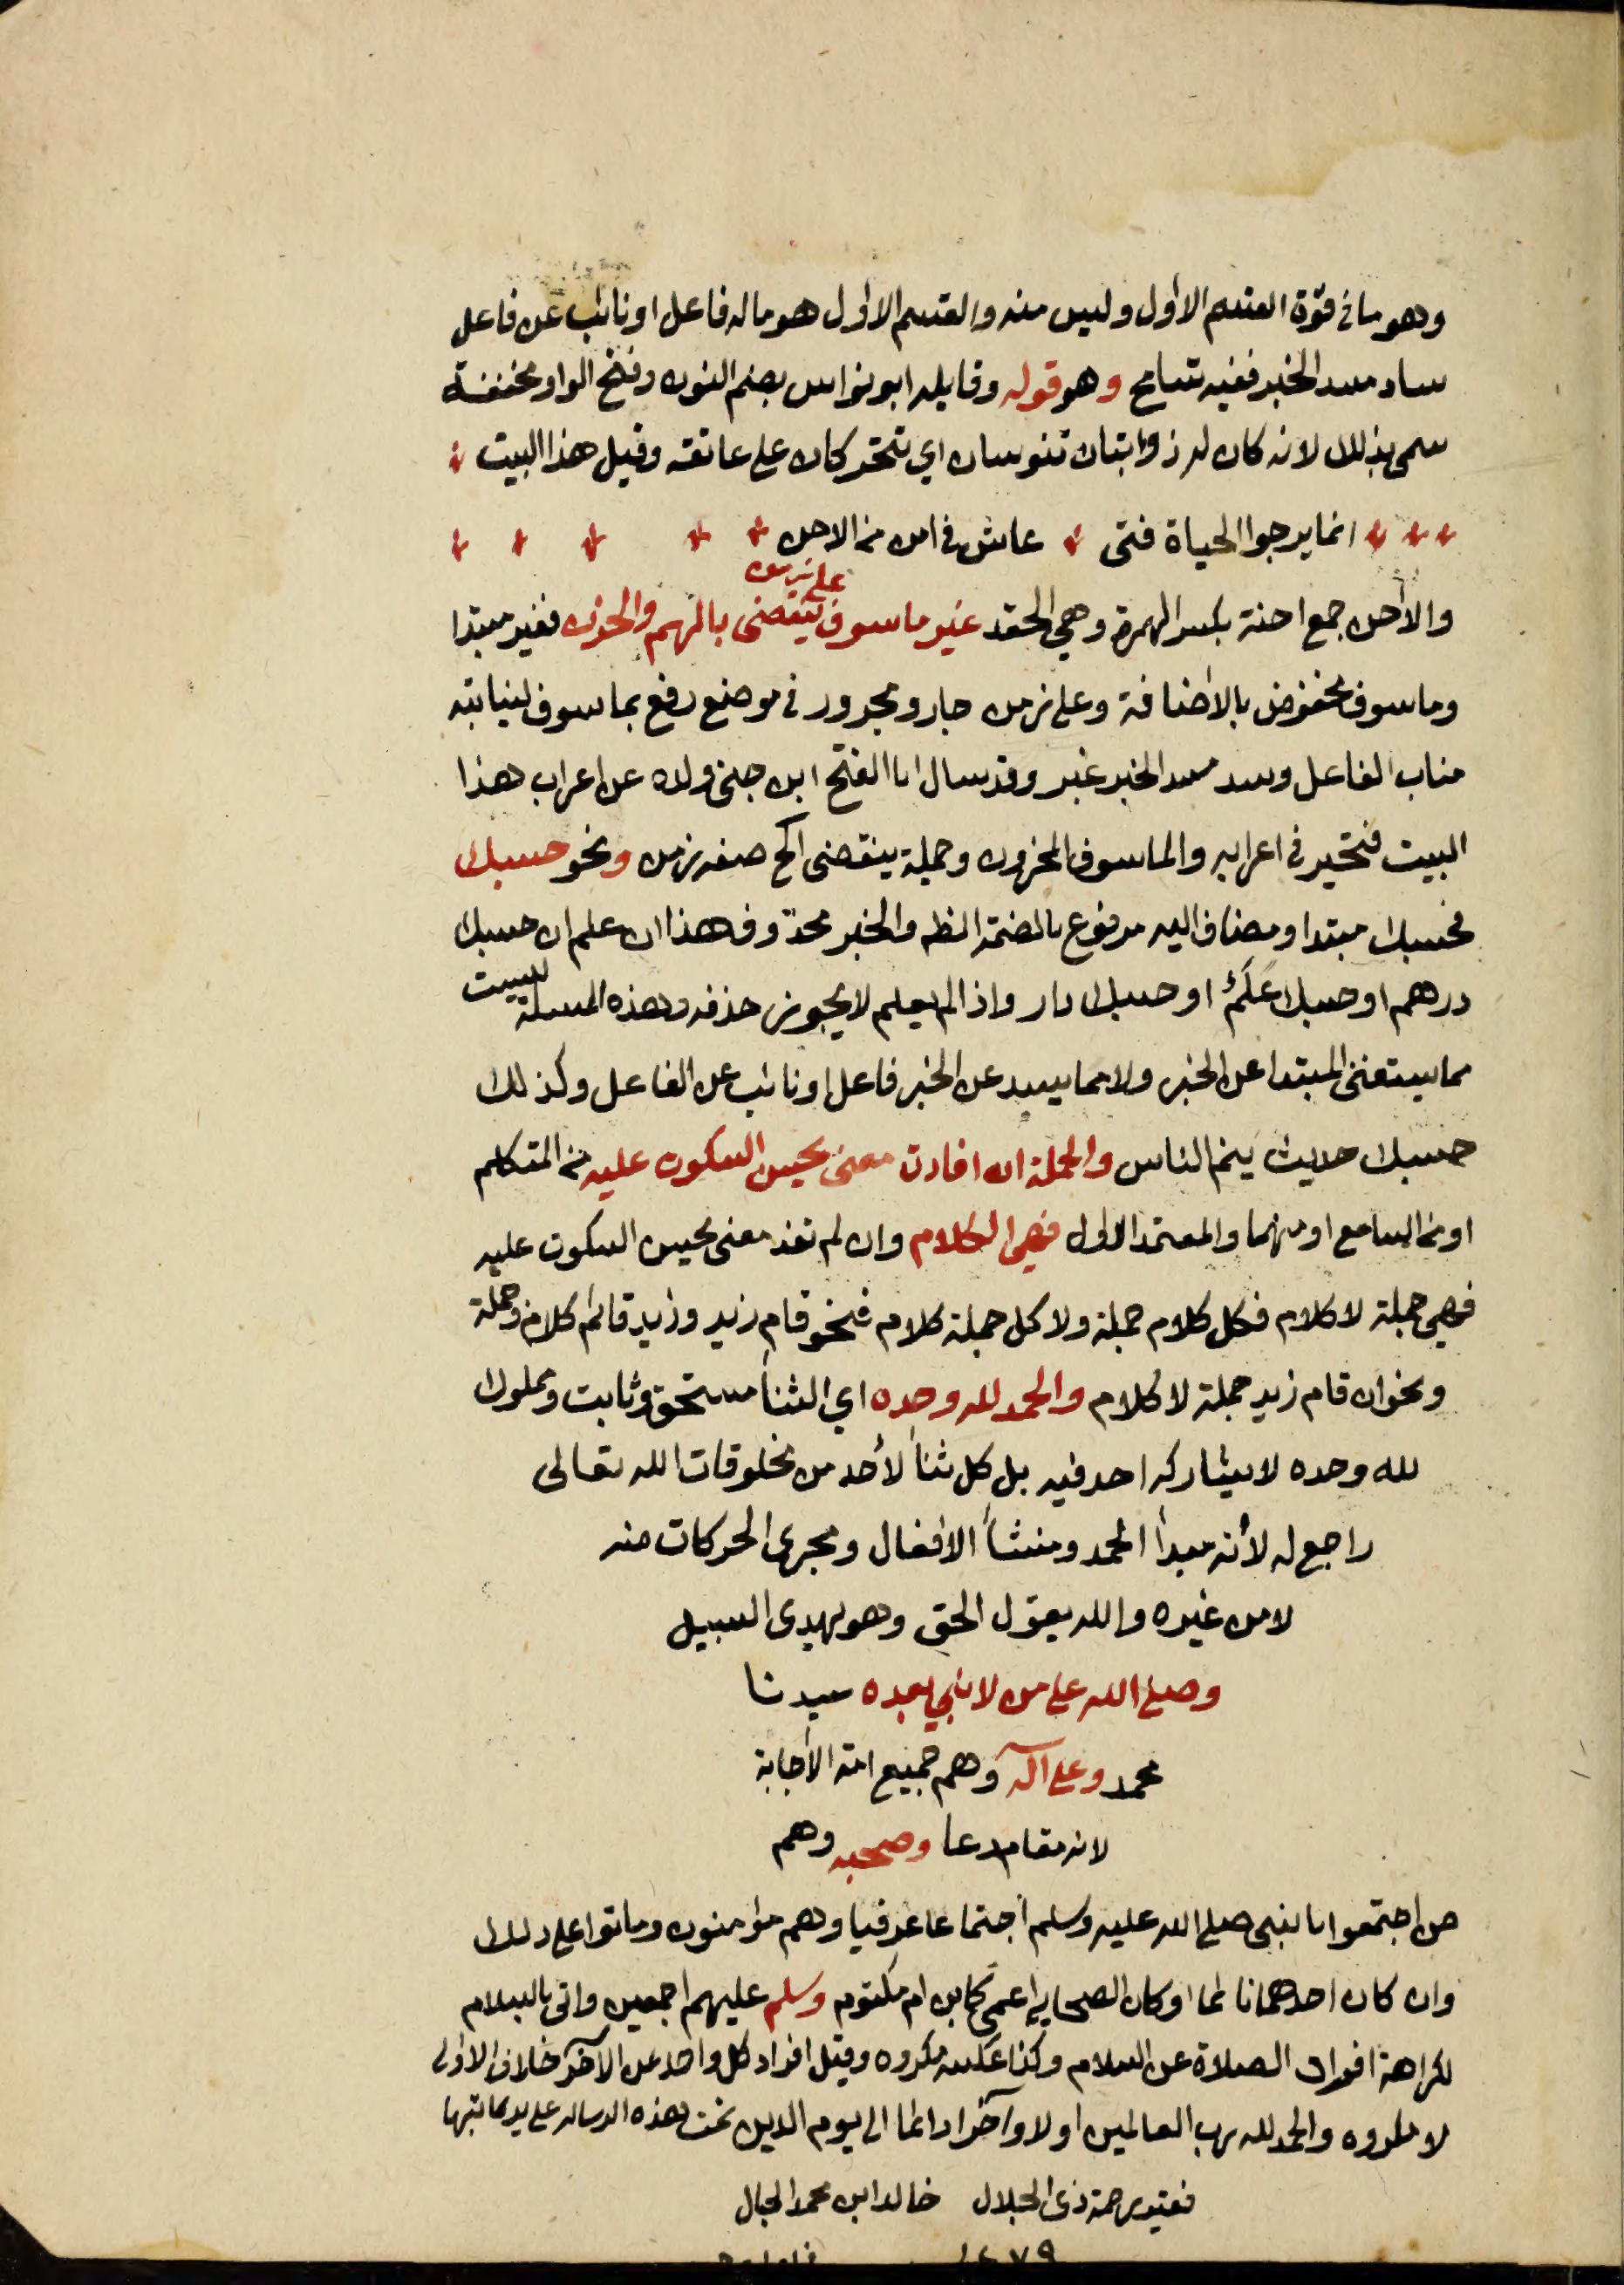 وهو ما فى قوة القسم الاول وليس منه والقسم الاول هو ماله فاعل او نائب عن فاعل
ساد مسد الخبر ففيه تسامح وهو قوله وقايله ابو نواس بضم النون وفتح الواو مخففة
سمى بذلك لانه كان له ذوابتان تنوسان اي تتحركان على عاتقه وقبل هذا البيت
انما يرجوا الحياة فتى عاش فى امن من الاحن
على زمن
والأحن جمع احنة بكسر الهمزة وهي الحقد غير ماسوف ينقضى بالهم والحزن فغير مبتدا
وماسوف مخفوض بالأضافة وعلى زمن جار ومجرور فى موضع رفع بماسوف لنيابته
مناب الفاعل وسد مسد الخبر غير وقد سال ابا الفتح ابن جنى ولده عن اعراب هذا
البيت فتحير فى اعرابه والماسوف المحزون وجملة ينقضى الخ صفه زمن ونحو حسبك
فحسبك مبتدا ومضاف اليه مرفوع بالضمة الظه والخبر محذوف هذا ان علم ان حسبك
درهم او حسبك عَلَمٌ او حسبك دار واذا لم يعلم لا يجوز حذفه وهذه المسئلة ليست
مما يستغنى المبتدا عن الخبر ولا مما يسد عن الخبر فاعل او نائب عن الفاعل وكذلك
حسبك حديث ينم الناس والجملة ان افادت معنى يحسن السكوت عليه من المتكلم
او من السامع او منهما والمعتمد الاول فهي الكلام وان لم تفد معنى يحسن السكوت عليه
فهي جملة لا كلام فكل كلام جملة ولا كل جملة كلام فنحو قام زيد وزيد قائم كلام وجملة
ونحو ان قام زيد جملة لا كلام والحمد لله وحده اي الثنأ مستحق وثابت ومملوك
لله وحده لا يشاركه احد فيه بل كل ثنأ لأحد من مخلوقات الله تعالى
راجع له لأنه مبدأ الحمد ومنشأ الافعال ومجرى الحركات منه
لا من غيره والله يقول الحق وهو يهدى السبيل
وصلى الله على من لا نبي بعده سيدنا
محمد وعلى آله وهم جميع امة الأجابة
لانه مقام دعا وصحبه وهم
من اجتمعوا بالنبى صلى الله عليه وسلم اجتماعا عرفيا وهم مؤمنون وماتوا على ذلك
وان كان احدهما نائما او كان الصحابي اعمى كابن ام مكتوم وسلم عليهم اجمعين واتى بالسلام
لكراهة افراد الصلاة عن السلام وكذا عكسه مكروه وقيل افراد كل واحد عن الآخر خلاف الاولى
لا مكروه والحمد لله رب العالمين اولا وآخرا دائما الى يوم الدين تمت هذه الرساله على يد كاتبها
فقير رحمة ذى الجلال خالد ابن محمد الجبال